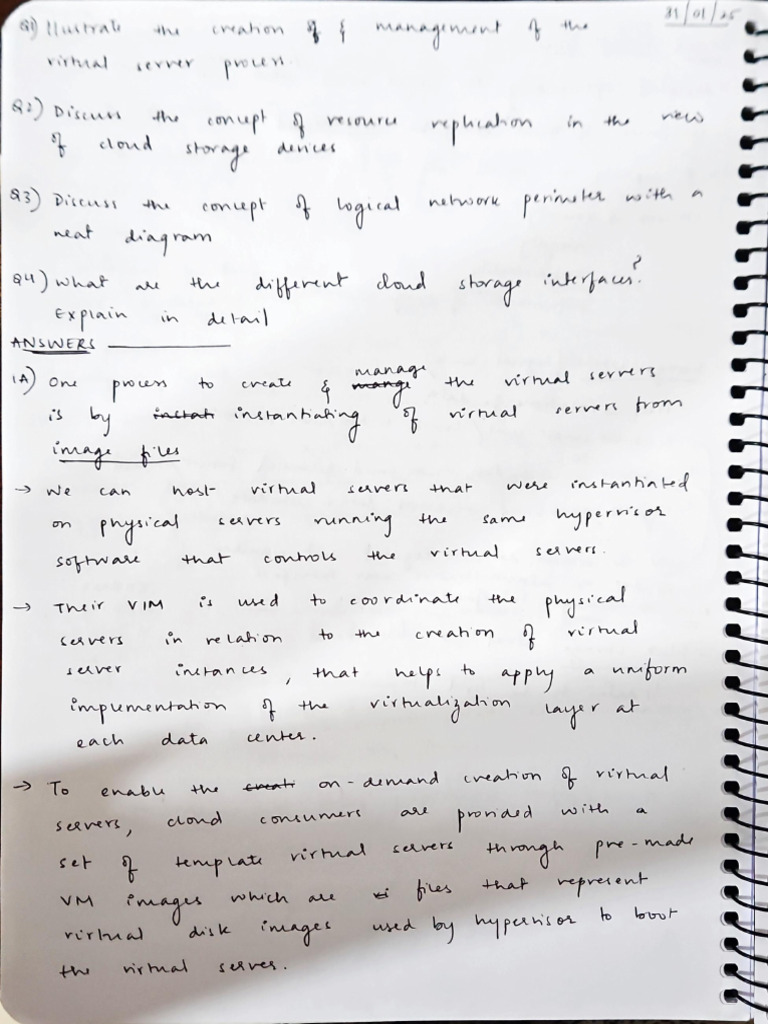 31/01/25
Q1) Illustrate the creation of & management of the
virtual server process.
Q2) Discuss the concept of resource replication in the view
of cloud storage devices
Q3) Discuss the concept of logical network perimeter with a
neat diagram
Q4) What are the different cloud storage interfaces?
Explain in detail
ANSWERS
1A) One process to create & manage the virtual servers
is by instantiating of virtual servers from
image files
→ We can host virtual servers that were instantiated
on physical servers running the same hypervisor
software that controls the virtual servers.
→ Their VIM is used to coordinate the physical
servers in relation to the creation of virtual
server instances, that helps to apply a uniform
implementation of the virtualization layer at
each data center.
→ To enable the creati on-demand creation of virtual
servers, cloud consumers are provided with a
set of template virtual servers through pre-made
VM images which are files that represent
virtual disk images used by hypervisor to boot
the virtual server.